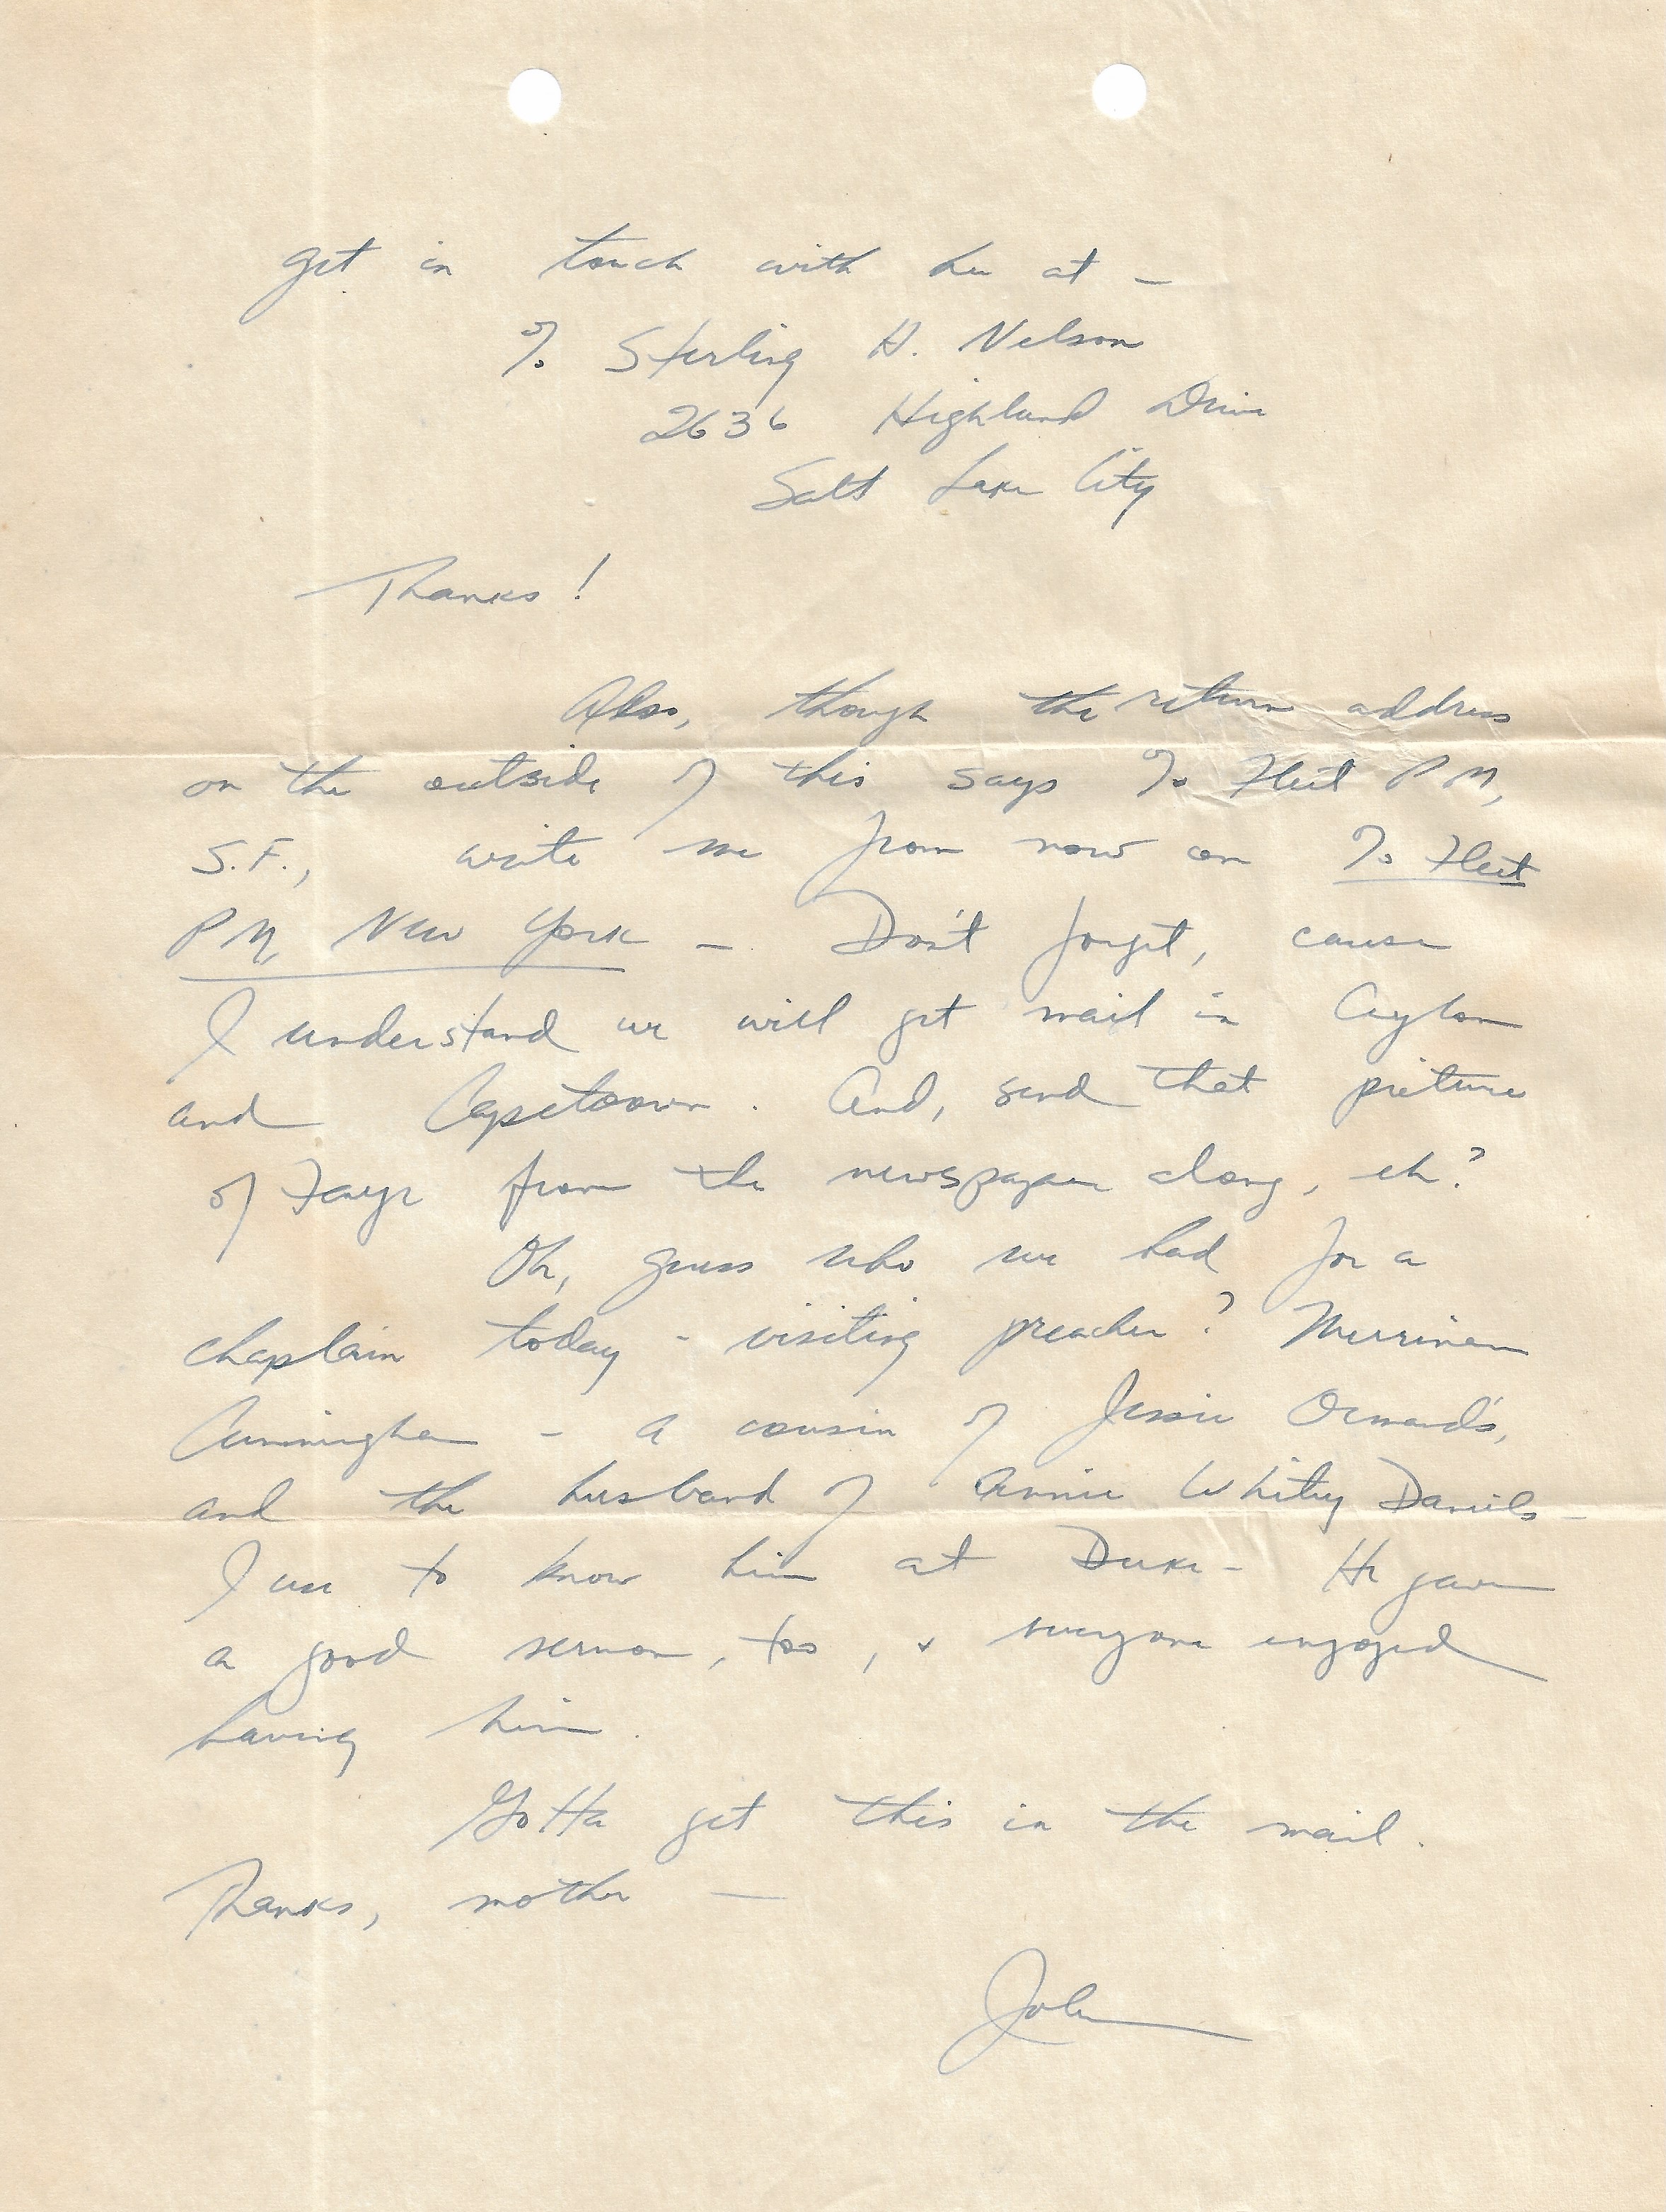 get in touch with her at —
℅ Sterling H. Nelson
2636 Highland Drive
Salt Lake City
Thanks!
Also, though the return address
on the outside of this says ℅ Fleet PM,
S.F., write me from now on ℅ Fleet
PM, New York — Don't forget, cause
I understand we will get mail in Ceylon
and Capetown. And, send that picture
of Faye from the newspaper along, eh?
Oh, guess who we had for a
chaplain today - visiting preacher? Merrimon
Cunningham - a cousin of Jessie Ormond's,
and the husband of Annie Whitty Daniels -
I use to know him at Duke - He gave
a good sermon, too, & everyone enjoyed
having him.
Gotta get this in the mail.
Thanks, mother —
John